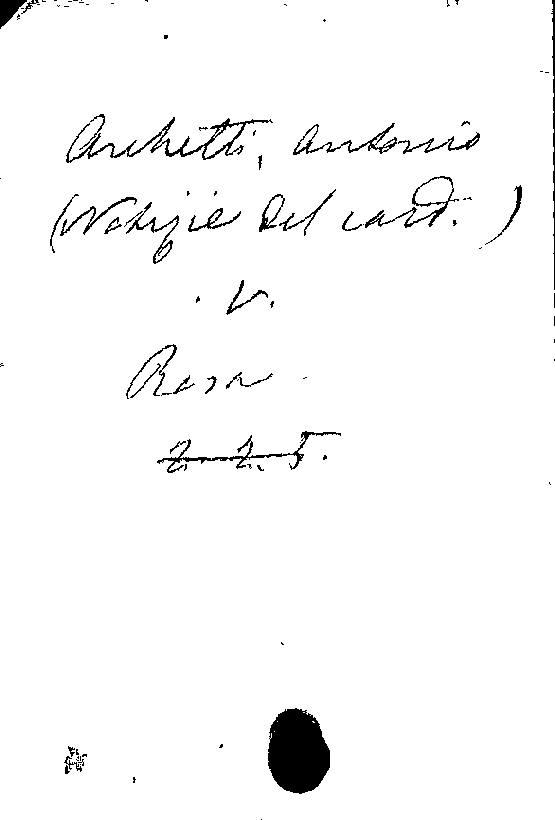 Archetti, Antonio
(Notizie del card. )
. V.
Rosa
Z. Z. 5.